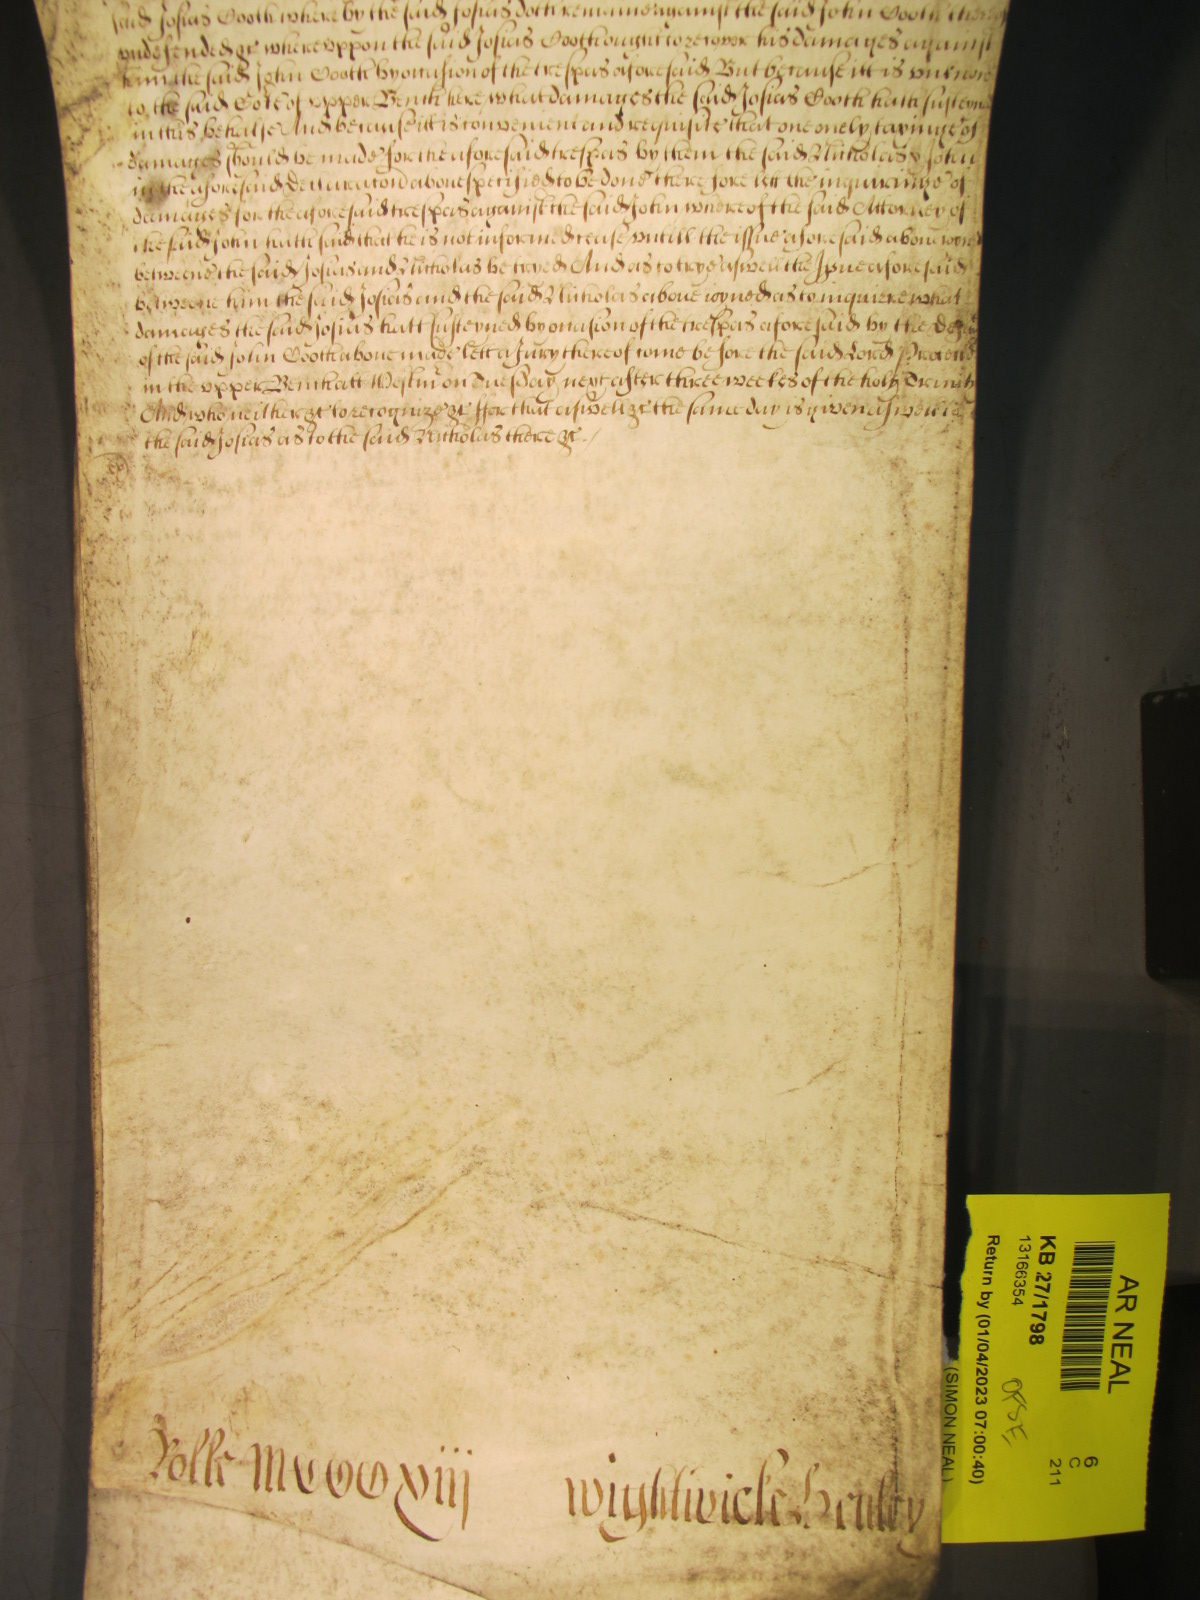 said Josias Cooth where by the said Josias doth remaine against the said John Cooth
undefended &c where uppon the said Josias Cooth ought to recover his damages against
him the said John Cooth by occasion of the trespas aforesaid But because itt is unknowne
to the said Cort of Upper Bench here what damages the said Josias Cooth hath susteyned
in this behalfe And because itt is convenient and requisite that one onely taxinge of
damages should be made for the aforesaid trespas by them the said Nicholas & John
in the aforesaid Declaracion above specified to be done there fore lett the inquiringe of
damages for the aforesaid trespas against the said John whereof the said Attorney of
the said John hath said that he is not informed cease untill the issue aforesaid above joyned
betweene the said Josias and Nicholas be tryed And as to trye aswell the Issue aforesaid
betweene him the said Josias and the said Nicholas above joyned as to inquiere what
damages the said Josias hath susteyned by occasion of the trespas aforesaid by the
of the said John Cooth above made lett a Jury thereof come before the said Lord Protector
in the upper Bench att Westm on Tuesday next after three weekes of the holy Trinity
And who neither &c to recognize &c ffor that aswell &c the same day is given aswell to
the said Josias as to the said Nicholas there &c ./
Rolle MCCCCxviij Wightwicke Henley
AR NEAL
6
C
211
KB 27/1798
13166354
Return by (01/04/2023 07:00:40)
(SIMON NEAL)